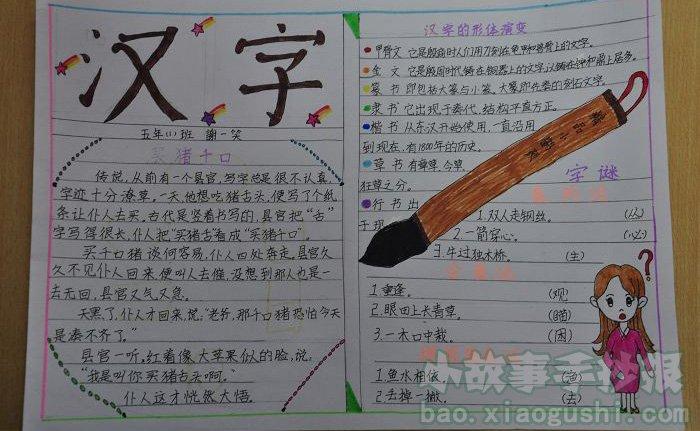 汉字
五年(1)班 谢一笑
买猪千口
传说,从前有一个县官,写字总是很不认真,
字迹十分潦草。一天他想吃猪舌头,便写了个纸
条让仆人去买。古代是竖着书写的,县官把“舌”
字写得很长,仆人把“买猪舌”看成“买猪千口”。
买千口猪谈何容易,仆人四处奔走。县官久
久不见仆人回来,便叫人去催,没想到那人也是一
去无回,县官又气又急。
天黑了,仆人才回来,说:“老爷,那千口猪恐怕今天
是凑不齐了。”
县官一听,红着像大苹果似的脸,说:
“我是叫你买猪舌头啊。”
仆人这才恍然大悟。
汉字的形体演变
甲骨文 它是殷商时人们用刀刻在龟甲和兽骨上的文字。
金 文 它是殷周时代铸在铜器上的文字,以铸在钟和鼎上居多。
篆 书 即包括大篆与小篆。大篆即
隶 书 它出现于秦代,结构平直方正。
楷 书 从东汉开始使用,一直沿用
到现在,有1800年的历史。
草 书 有章草 今草
狂草之分。
行 书 出
于现
字谜
1.双人走钢丝。 (丛)
2.一箭穿心。 (必)
3.牛过独木桥。 (生)
1.重逢。 (观)
2.眼田上长青草。 (瞄)
3.一木口中栽。 (困)
1.鱼水相依。 (渔)
2.丢掉一撇。 (去)
小故事手抄报
bao.xiaogushi.com